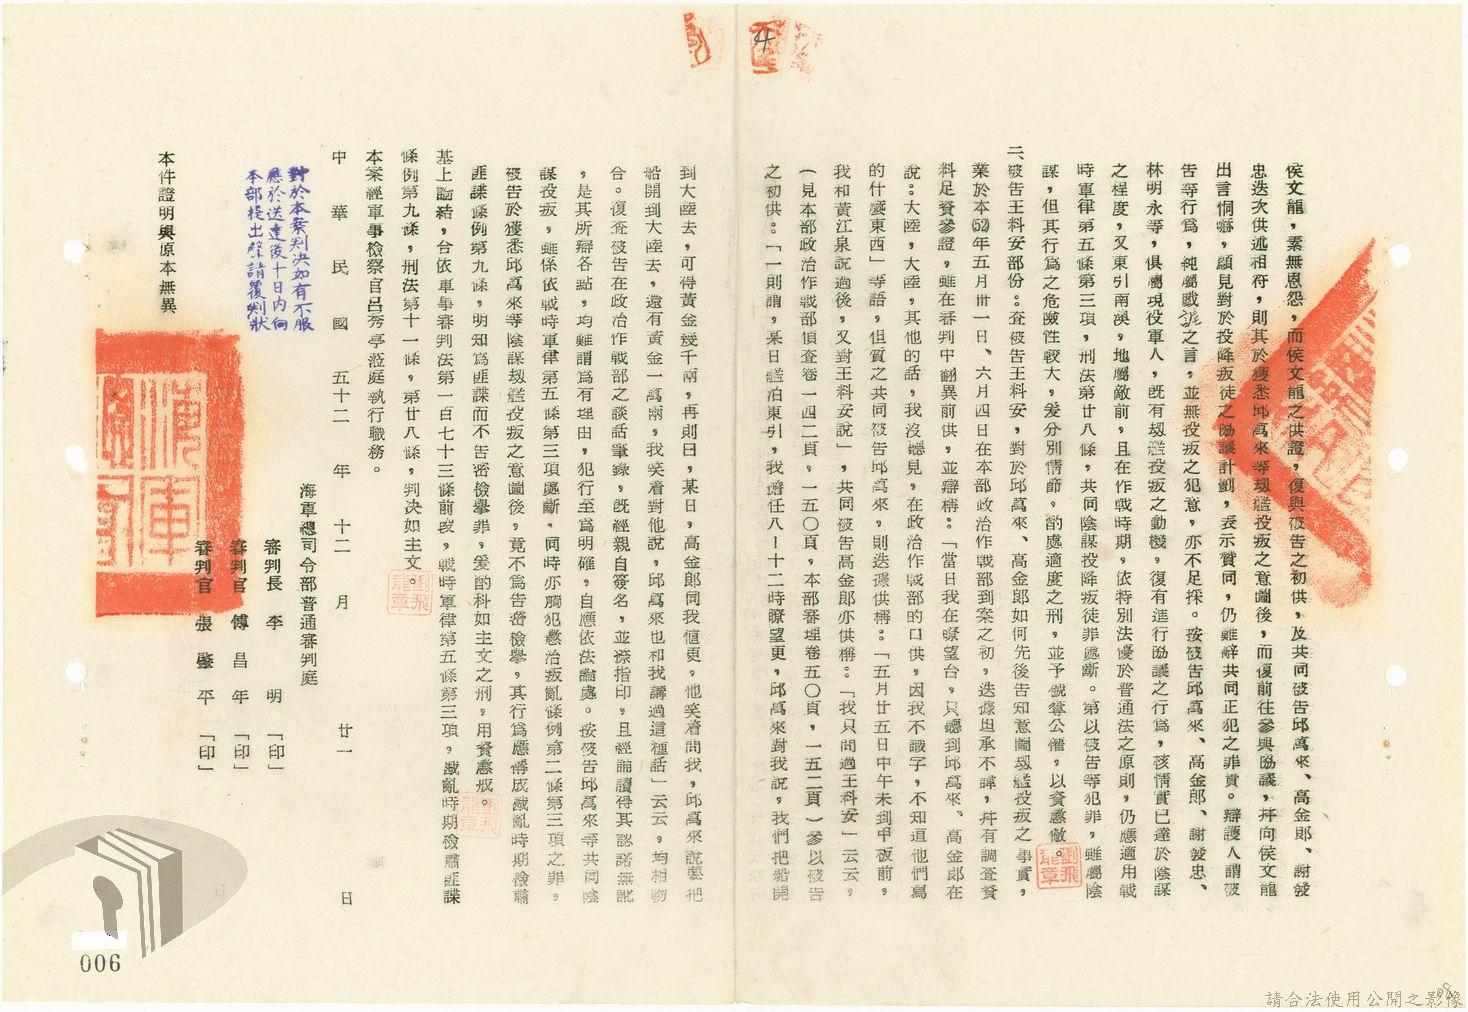 侯文龍，素無恩怨，而侯文龍之供證，復與被告之初供，及共同被告邱萬來、高金郎、謝發
忠迭次供述相符，則其於獲悉邱萬來等劫艦投叛之意圖後，而復前往參與協議，并向侯文龍
出言恫嚇，顯見對於投降叛徒之協議計劃，表示贊同，仍難辭共同正犯之罪責。辯護人謂被
告等行為，純屬戲謔之言，並無投叛之犯意，亦不足採。按被告邱萬來、高金郎、謝發忠、
林明永等，俱屬現役軍人，既有劫艦投叛之動機，復有進行協議之行為，核情實已達於陰謀
之程度，又東引南澳，地屬敵前，且在作戰時期，依特別法優於普通法之原則，仍應適用戰
時軍律第五條第三項，刑法第廿八條，共同陰謀投降叛徒罪處斷。第以被告等犯罪，雖屬陰
謀，但其行為之危險性較大，爰分別情節，酌處適度之刑，並予褫奪公權，以資懲儆。
二、被告王科安部份：查被告王科安，對於邱萬來、高金郎如何先後告知意圖劫艦投叛之事實，
業於本(52)年五月卅一日、六月四日在本部政治作戰部到案之初，迭據坦承不諱，并有調查資
料足資參證，雖在審判中翻異前供，並辯稱：「當日我在瞭望台，只聽到邱萬來、高金郎在
說：大陸，大陸，其他的話，我沒聽見，在政治作戰部的口供，因我不識字，不知道他們寫
的什麼東西」等語，但質之共同被告邱萬來，則迭據供稱：「五月廿五日中午未到甲板前，
我和黃江泉說過後，又對王科安說」，共同被告高金郎亦供稱：「我只問過王科安」云云，
（見本部政治作戰部偵查卷一四二頁，一五〇頁，本部審理卷五〇頁，一五二頁）參以被告
之初供：「一則謂，某日艦泊東引，我擔任八－十二時瞭望更，邱萬來對我說，我們把船開
到大陸去，可得黃金幾千兩，再則曰，某日，高金郎同我值更，他笑着問我，邱萬來說要把
船開到大陸去，還有黃金一萬兩，我笑着對他說，邱萬來也和我講過這種話」云云，均相吻
合。復查被告在政治作戰部之談話筆錄，既經親自簽名，並捺指印，且經誦讀得其認諾無訛
，是其所辯各點，均難謂為有理由，犯行至為明確，自應依法論處。按被告邱萬來等共同陰
謀投叛，雖係依戰時軍律第五條第三項處斷，同時亦觸犯懲治叛亂條例第二條第三項之罪，
被告於獲悉邱萬來等陰謀劫艦投叛之意圖後，竟不為告密檢舉，其行為應構成戡亂時期檢肅
匪諜條例第九條，明知為匪諜而不告密檢舉罪，爰酌科如主文之刑，用資懲戒。
基上論結，合依軍事審判法第一百七十三條前段，戰時軍律第五條第三項，戡亂時期檢肅匪諜
條例第九條，刑法第十一條，第廿八條，判決如主文。
本案經軍事檢察官呂秀亭蒞庭執行職務。
中華民國五十二年十二月廿一日
海軍總司令部普通審判庭
審判長 李明「印」
審判官 傅昌年「印」
審判官 張肇平「印」
對於本案判決如有不服
應於送達後十日內向
本部提出聲請覆判狀
本件證明與原本無異
006
請合法使用公開之影像